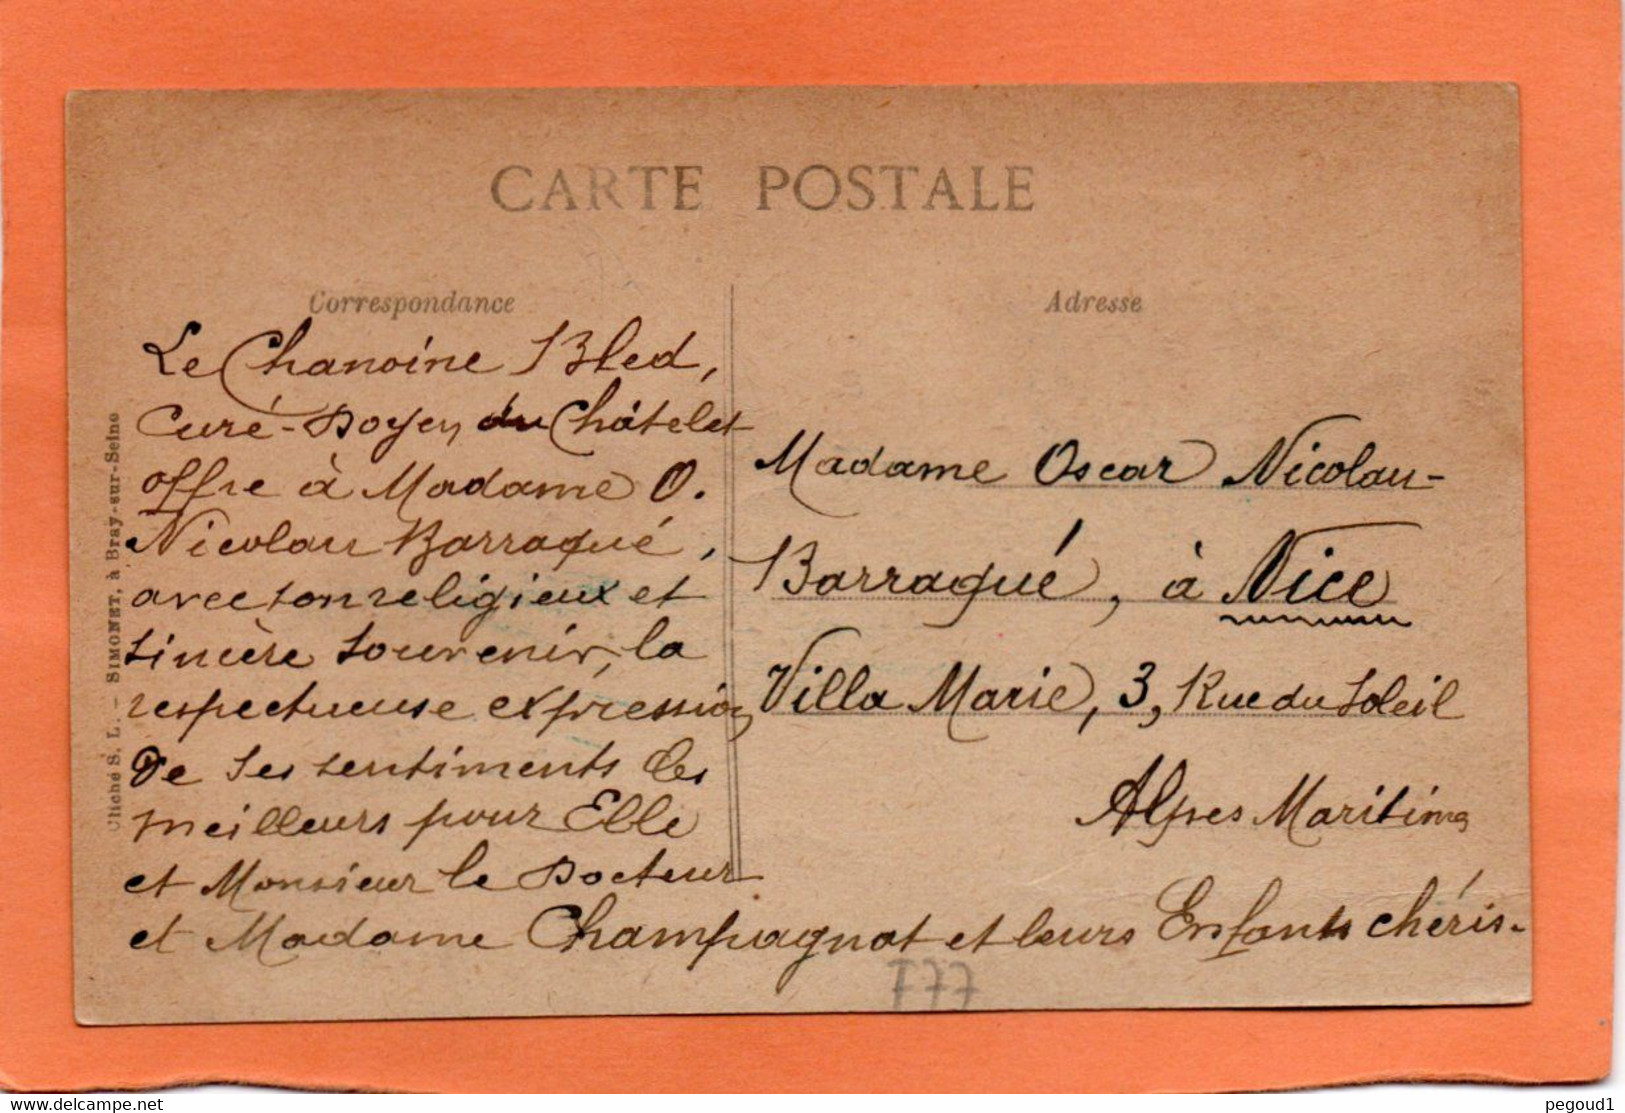 CARTE POSTALE
Correspondance
Le Chanoine Bled,
Curé-Doyen du Châtelet
offre à Madame O.
Nicolau Barraqué,
avec son religieux et
sincère souvenir, la
respectueuse expression
de ses sentiments les
meilleurs pour Elle
et Monsieur le Docteur
et Madame Champagnat et leurs Enfants chéris.
Adresse
Madame Oscar Nicolau-
Barraqué, à Nice
Villa Marie, 3, Rue du Soleil
Alpes Maritimes
Cliché S. L. - SIMONET, à Bray-sur-Seine
F77
www.delcampe.net
pegoud1